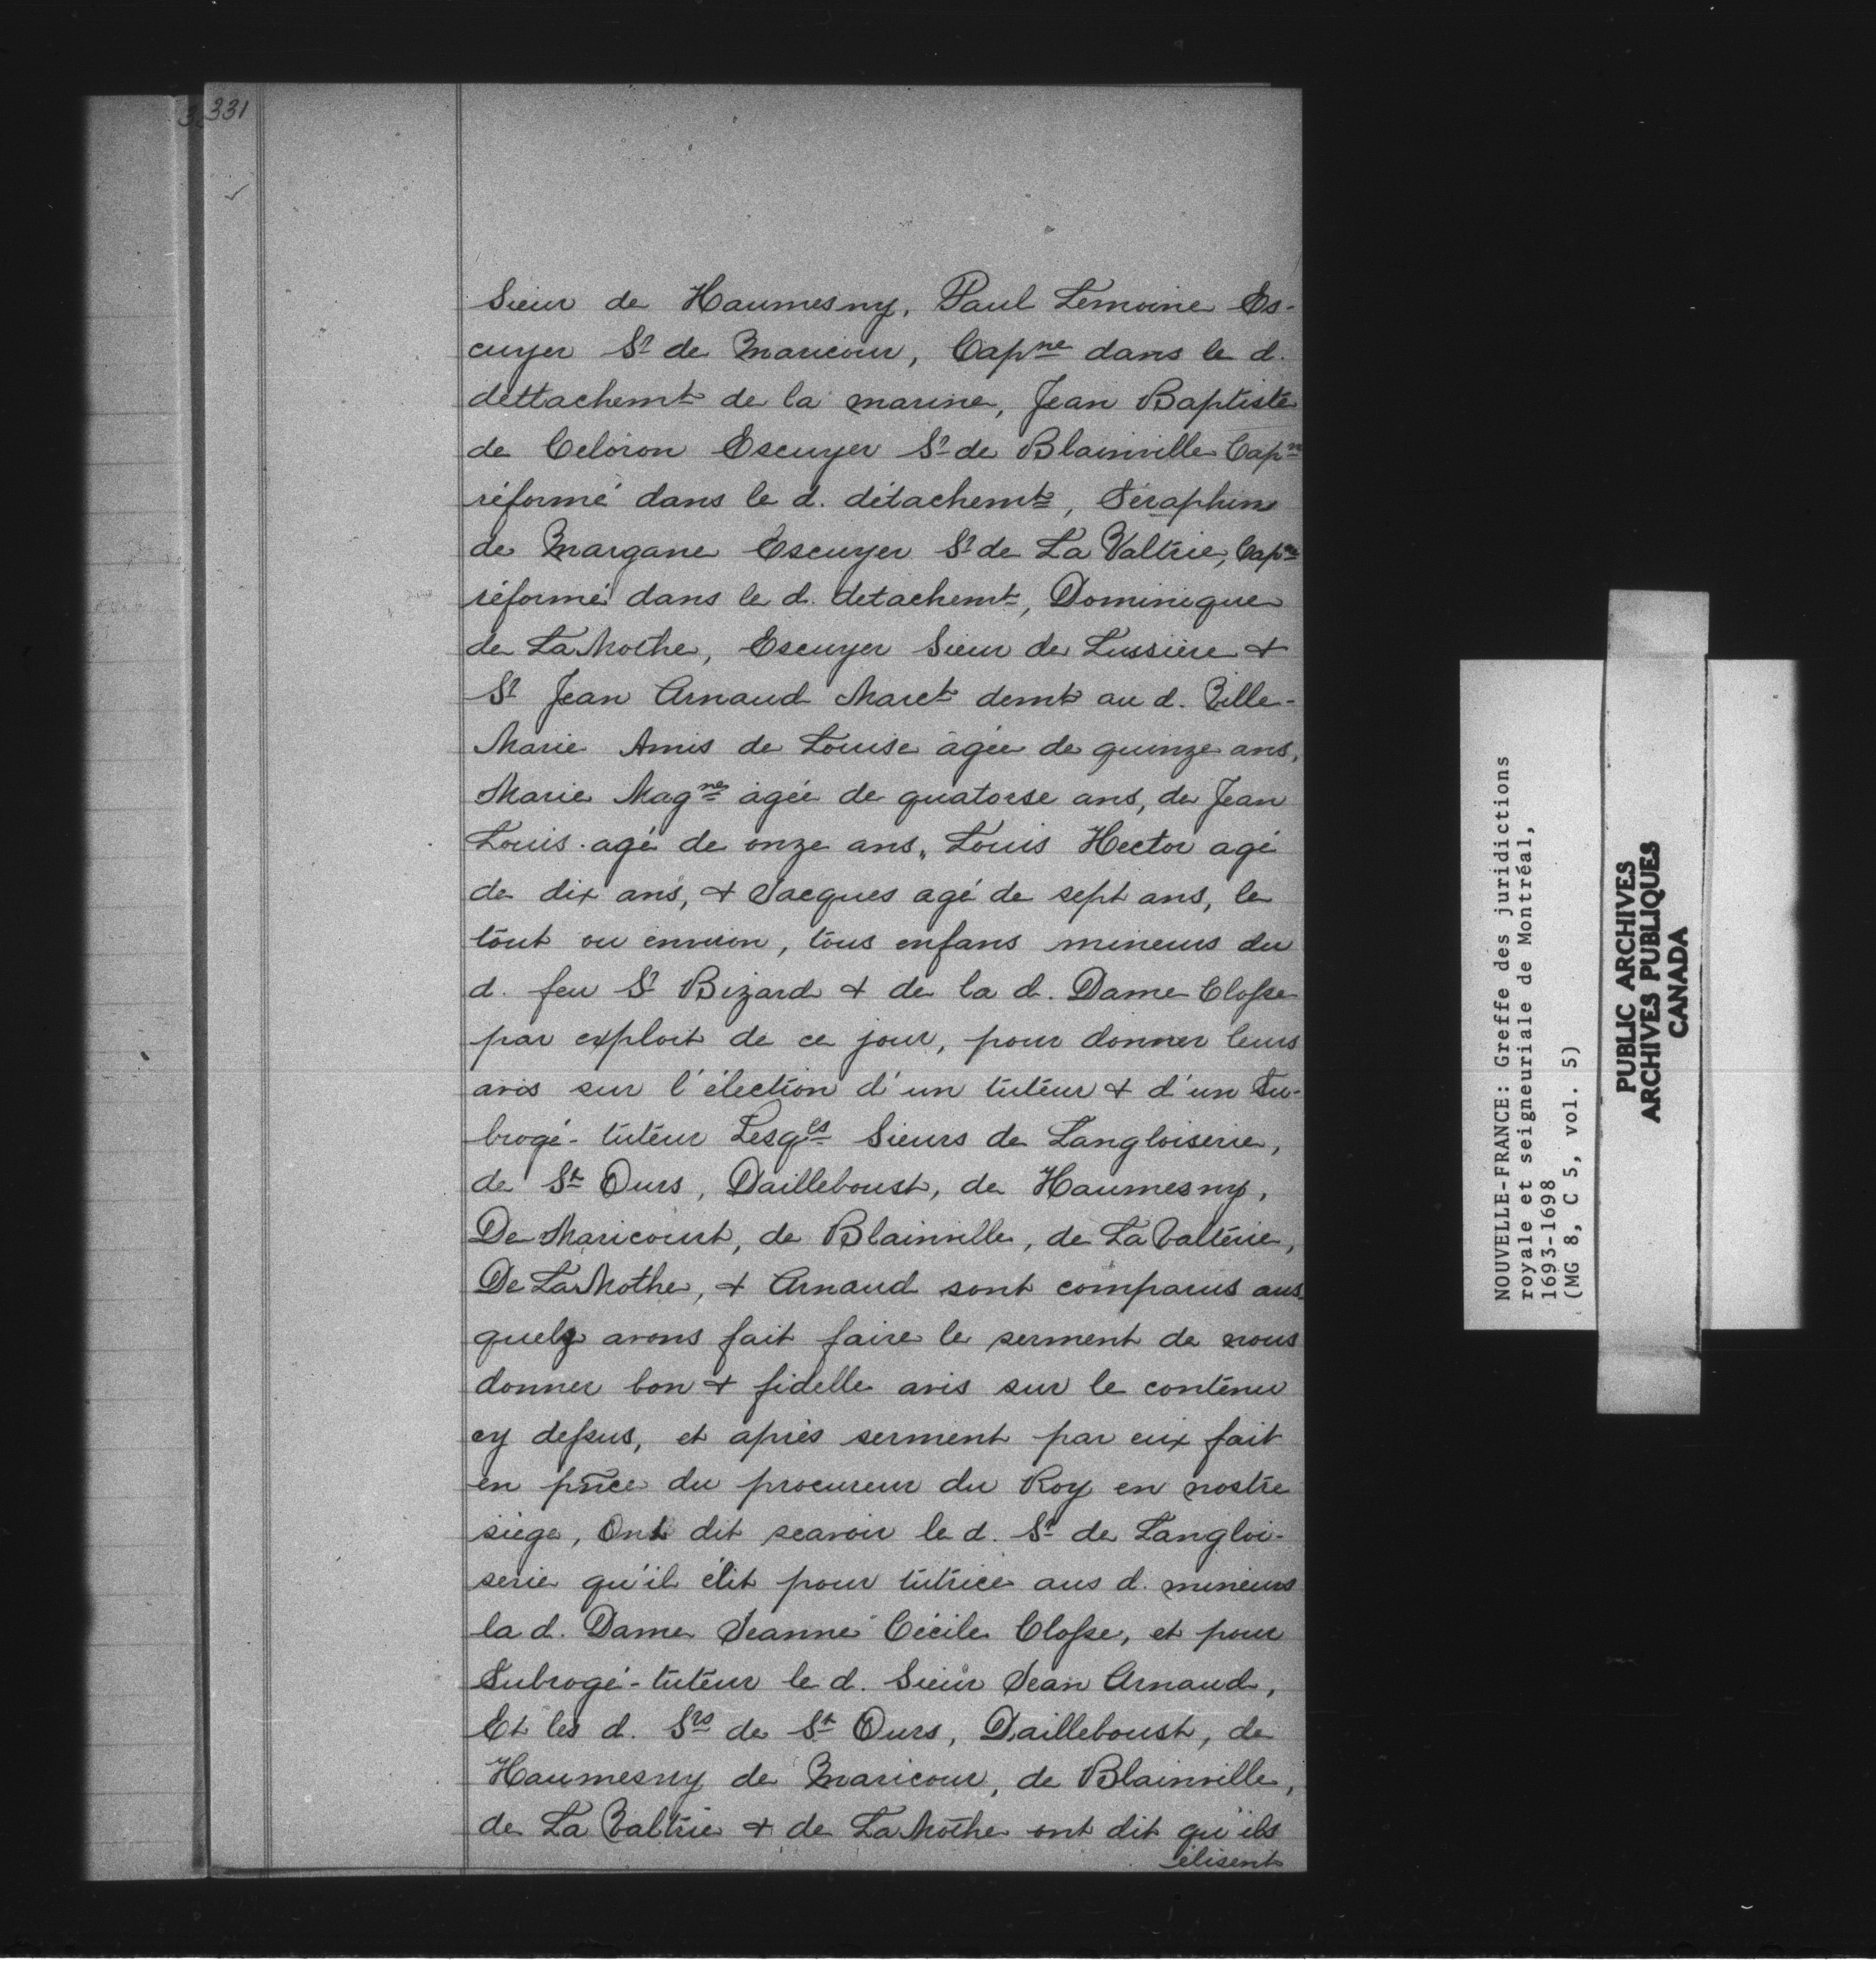 331
Sieur de Haumesny, Paul Lemoine Es-
cuyer Sr de Maricour, Capne dans le d.
dettachemt de la marine, Jean Baptiste
de Celoron Escuyer Sr de Blainville Capne
réformé dans le d. détachemt, Séraphin
de Margane Escuyer Sr de La Valtrie, Capne
réformé dans le d. detachemt, Dominique
de La Mothe, Escuyer Sieur de Lussière &
Sr Jean Arnaud Marct demt au d. Ville-
Marie Amis de Louise agée de quinze ans,
Marie Magne agée de quatorse ans, de Jean
Louis agé de onze ans, Louis Hector agé
de dix ans, & Jacques agé de sept ans, le
tout ou environ, tous enfans mineurs du
d. feu Sr Bizard & de la d. Dame Closse
par exploit de ce jour, pour donner leurs
avis sur l'élection d'un tuteur & d'un Su-
brogé-tuteur Lesqls Sieurs de Langloiserie,
de St Ours, Dailleboust, de Haumesny,
De Maricourt, de Blainville, de La Valterie,
De La Mothe, & Arnaud sont comparus aus-
quelz avons fait faire le serment de nous
donner bon & fidelle avis sur le contenu
cy dessus, et après serment par eux fait
en pnce du procureur du Roy en nostre
siège, Ont dit scavoir le d. Sr de Langloi-
serie qu'il élit pour tutrice aus d. mineurs
la d. Dame Jeanne Cécile Closse, et pour
Subrogé-tuteur le d. Sieur Jean Arnaud,
Et les d. Srs de St Ours, Dailleboust, de
Haumesny de Maricour, de Blainville,
de La Valtrie & de La Mothe ont dit qu'ils
élisent
NOUVELLE-FRANCE: Greffe des juridictions
royale et seigneuriale de Montréal,
1693-1698
(MG 8, C 5, vol. 5)
PUBLIC ARCHIVES
ARCHIVES PUBLIQUES
CANADA